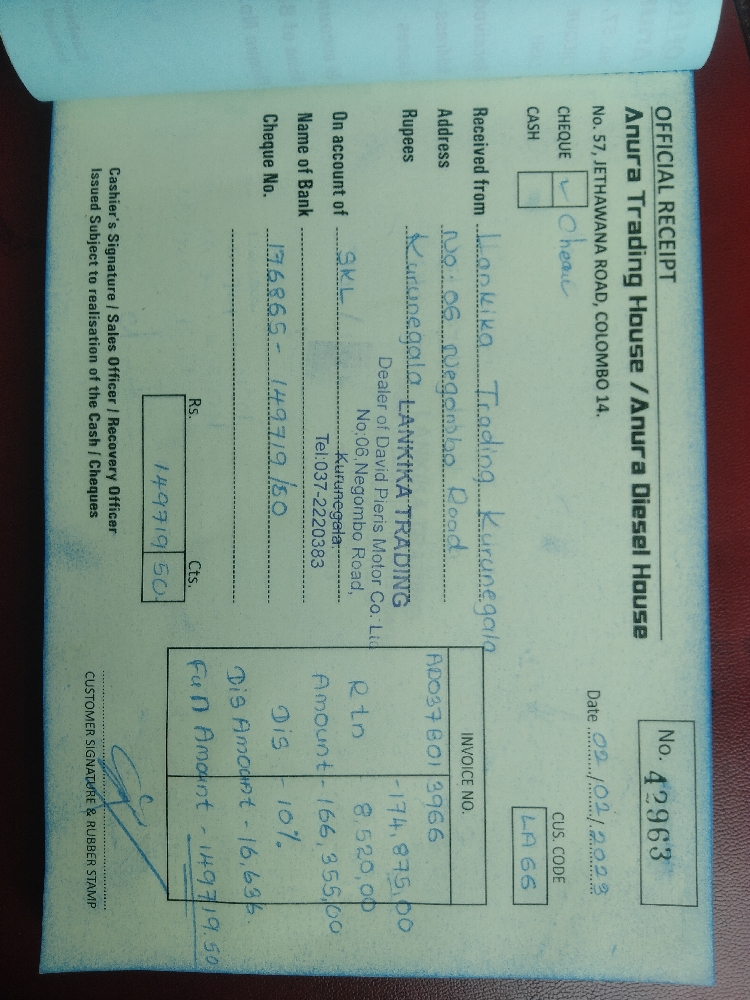 OFFICIAL RECEIPT
Anura Trading House / Anura Diesel House
No. 57, JETHAWANA ROAD, COLOMBO 14.
No. 42963
Date 09/02/2023
CHEQUE ✓ Cheque
CASH
CUS. CODE LA66
Received from Lankika Trading Kurunegala
Address No: 06 Negombo Road
Rupees Kurunegala
LANKIKA TRADING
Dealer of David Pieris Motor Co.
No:06, Negombo Road,
Kurunegala.
Tel:037-2220383
On account of SKL /
Name of Bank
Cheque No. 176865 - 149719/50
Rs. Cts.
149719 50
Cashier's Signature / Sales Officer / Recovery Officer
Issued Subject to realisation of the Cash / Cheques
INVOICE NO.
AD037B013966
-174,875.00
Rtn 8,520.00
Amount - 166,355.00
Dis - 10%
Dis Amount - 16,636.
Full Amount - 149719.50
CUSTOMER SIGNATURE & RUBBER STAMP